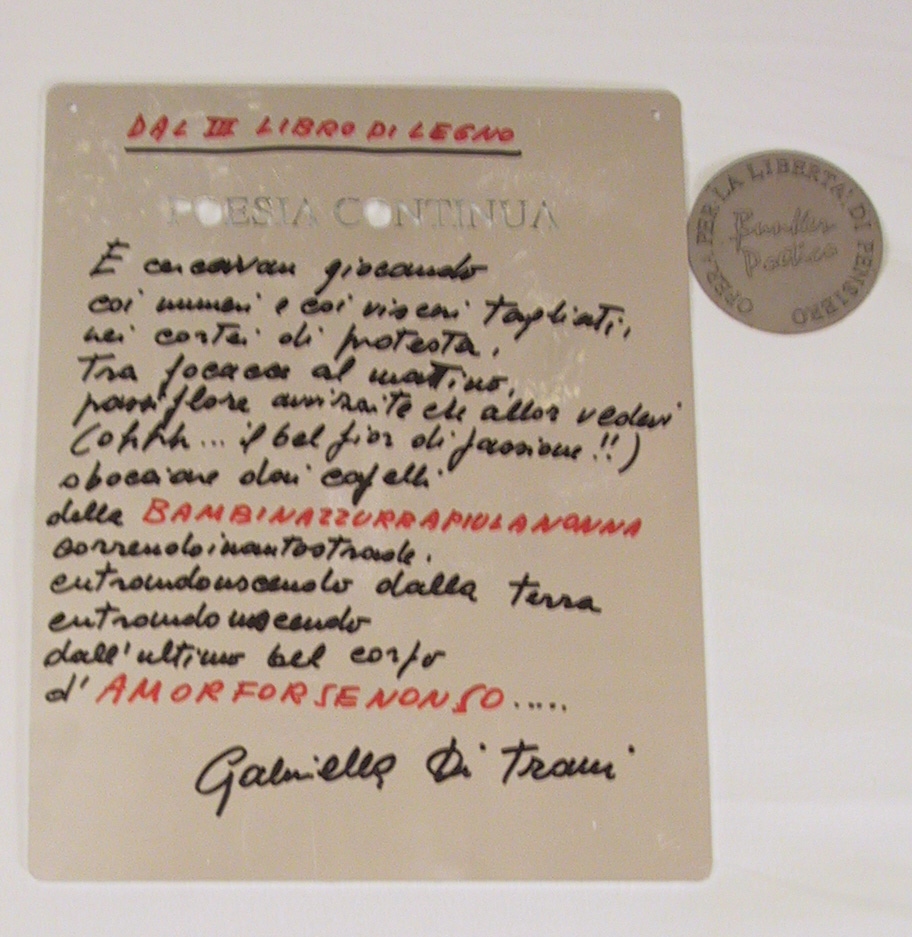 DAL III LIBRO DI LEGNO
POESIA CONTINUA
E cercavan giocando
coi numeri e coi visceri tagliati,
nei cortei di protesta,
tra focacce al mattino,
passiflore avvizzite che allor vedevi
(ohhh... il bel fior di passione!!)
sbocciare dai capelli
della BAMBINAZZURRAPIULANONNA
correndoinautostrade.
entrandouscendo dalla terra
entrandouscendo
dall'ultimo bel corpo
d'AMORFORSENONSO.....
Gabriella Di Trani
OPERA PER LA LIBERTA' DI PENSIERO
Bunker
Poetico